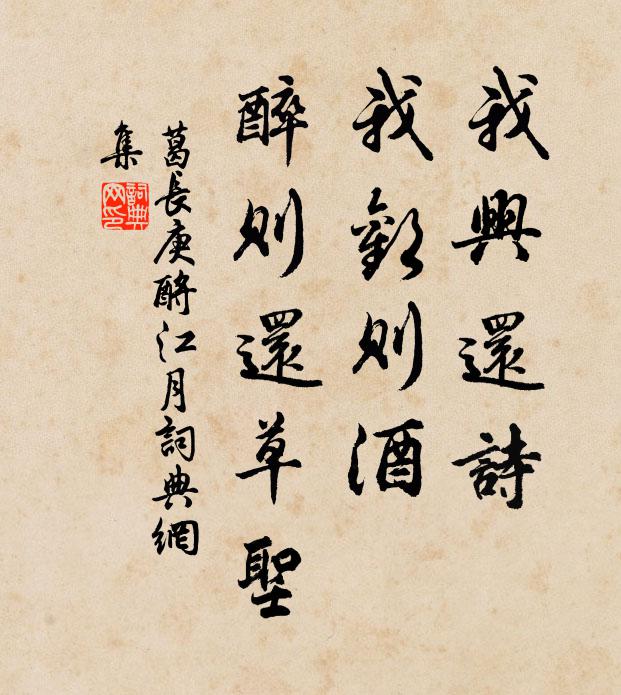 我興還詩
我歡則酒
醉則還草聖
葛長庚酹江月詞典網
集
詞典
网印